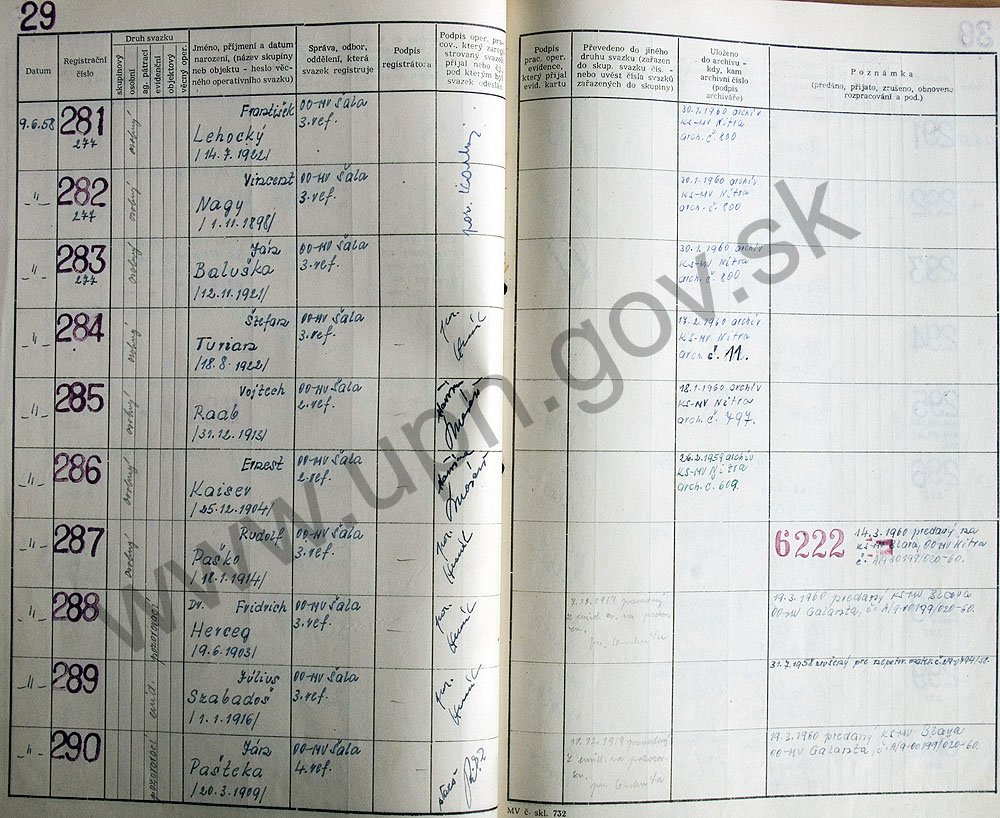 29
Datum
Registrační číslo
Druh svazku
skupinový
osobní
ag. pátrací
evidenční
objektový
věcný oper.
Jméno, příjmení a datum
narození, (název skupiny
neb objektu - heslo věc-
ného operativního svazku)
Správa, odbor,
oddělení, která
svazek registruje
Podpis
registrátora
Podpis oper. pra-
cov., který zareg-
istrovaný svazek
přijal neb ký,
pod kterým byl
svazek odeslán
Podpis
prac. oper.
evidence,
který přijal
evid. kartu
Převedeno do jiného
druhu svazku (zařazen
do skup. svazku čís. -
nebo uvést čísla svazků
zařazených do skupiny)
Uloženo
do archivu -
kdy, kam
archivní číslo
(podpis
archiváře)
Poznámka
(předáno, přijato, zrušeno, obnoveno
rozpracování a pod.)
9.6.58 281 277 osobný František Lehocký /14.7.1922/ OO-MV Šala 3. ref. — 30.1.1960 archív KS-MV Nitra arch. č. 800
-"- 282 277 osobný Vincent Nagy /1.11.1898/ OO-MV Šala 3. ref. — 30.1.1960 archív KS-MV Nitra arch. č. 800
-"- 283 277 osobný Ján Baluška /12.11.1921/ OO-MV Šala 3. ref. — 30.1.1960 archív KS-MV Nitra arch. č. 800
-"- 284 osobný Štefan Turian /18.8.1922/ OO-MV Šala 3. ref. — por. 17.2.1960 archív KS-MV Nitra arch. č. 11.
-"- 285 osobný Vojtech Raab /31.12.1913/ OO-MV Šala 2. ref. — 18.1.1960 archív KS-MV Nitra arch. č. 797.
-"- 286 osobný Ernest Kaiser /25.12.1904/ OO-MV Šala 2. ref. — 26.2.1959 archív KS-MV Nitra arch. č. 609.
-"- 287 osobný Rudolf Paško /18.1.1914/ OO-MV Šala 3. ref. — por. 6222 14.3.1960 predaný na KS-MV Blava, OO-MV Nitra č. A/9-00199/020-60.
-"- 288 pozorovací Dr. Fridrich Herceg /9.6.1903/ OO-MV Šala 3. ref. — por. 19.3.1960 predaný KS-MV Blava OO-MV Galanta, č. A/9-00199/020-60.
-"- 289 Július Szabadoš /1.1.1916/ OO-MV Šala 3. ref. — por. 31.7.1958 zrušený pre
-"- 290 pozorovací Ján Pašteka /20.3.1909/ OO-MV Šala 4. ref. — 19.3.1960 predaný KS-MV Blava OO-MV Galanta, č. A/9-00199/020-60.
MV č. skl. 732
www.upn.gov.sk